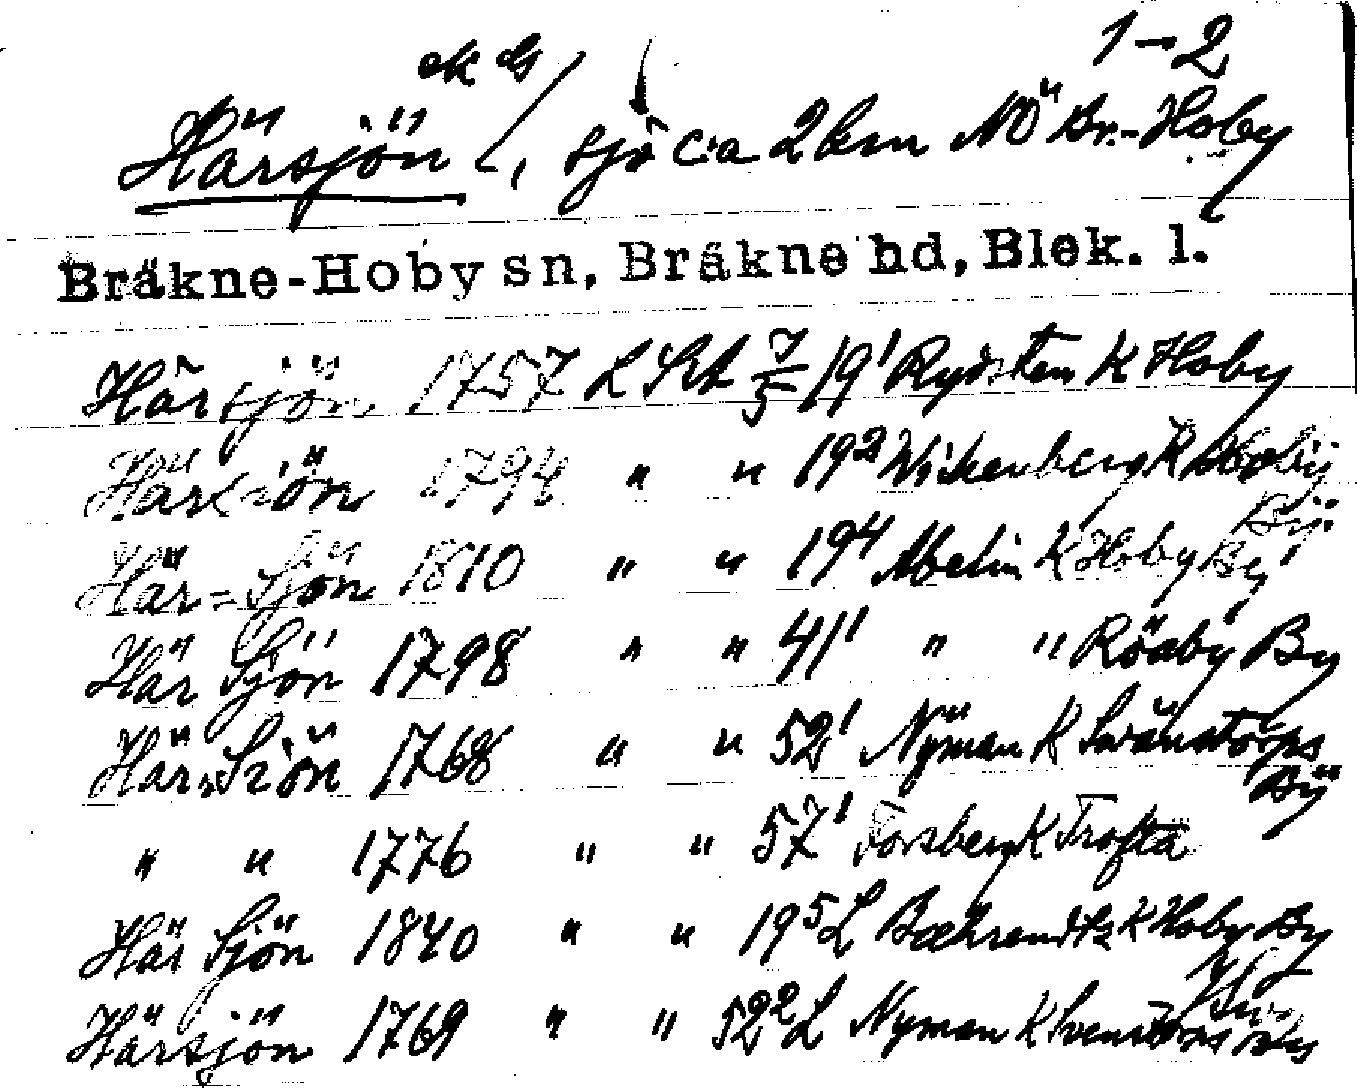 1-2
ek ds
Härsjön, sjö c:a 2 km NÖ Br.-Hoby
Bräkne-Hoby sn, Bräkne hd, Blek. l.
Härsjön 1757 L Skt 7/5 19¹ Rydsten K Hoby
Härsiön 1794 " " 19² Wickenberg K Hoby
Bÿ.
Här=Sjön 1810 " " 19⁴ Abelin K Hoby By
Här Sjön 1798 " " 41¹ " " Röaby By
Här=Siön 1768 " " 52¹ Nÿman K Swänstorps
Bÿ
" " 1776 " " 57¹ Forsberg K Trofta
Här Sjön 1840 " " 19⁵ L Bæhrendtz K Hoby By
Härsjön 1769 " " 52² L Nyman K